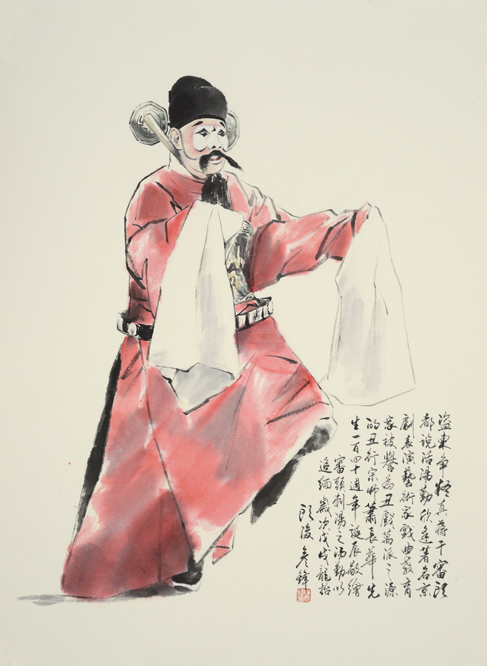 盜柬争疑真蒋干審頭
都说活湯勤欣逢著名京
劇表演藝術家戲曲教育
家被譽為丑戲萬派之源
的丑行宗师蕭長華先
生一百四十週年誕辰敬繪
審頭刺湯之湯勤以
追缅歲次戊戌龍抬
頭後